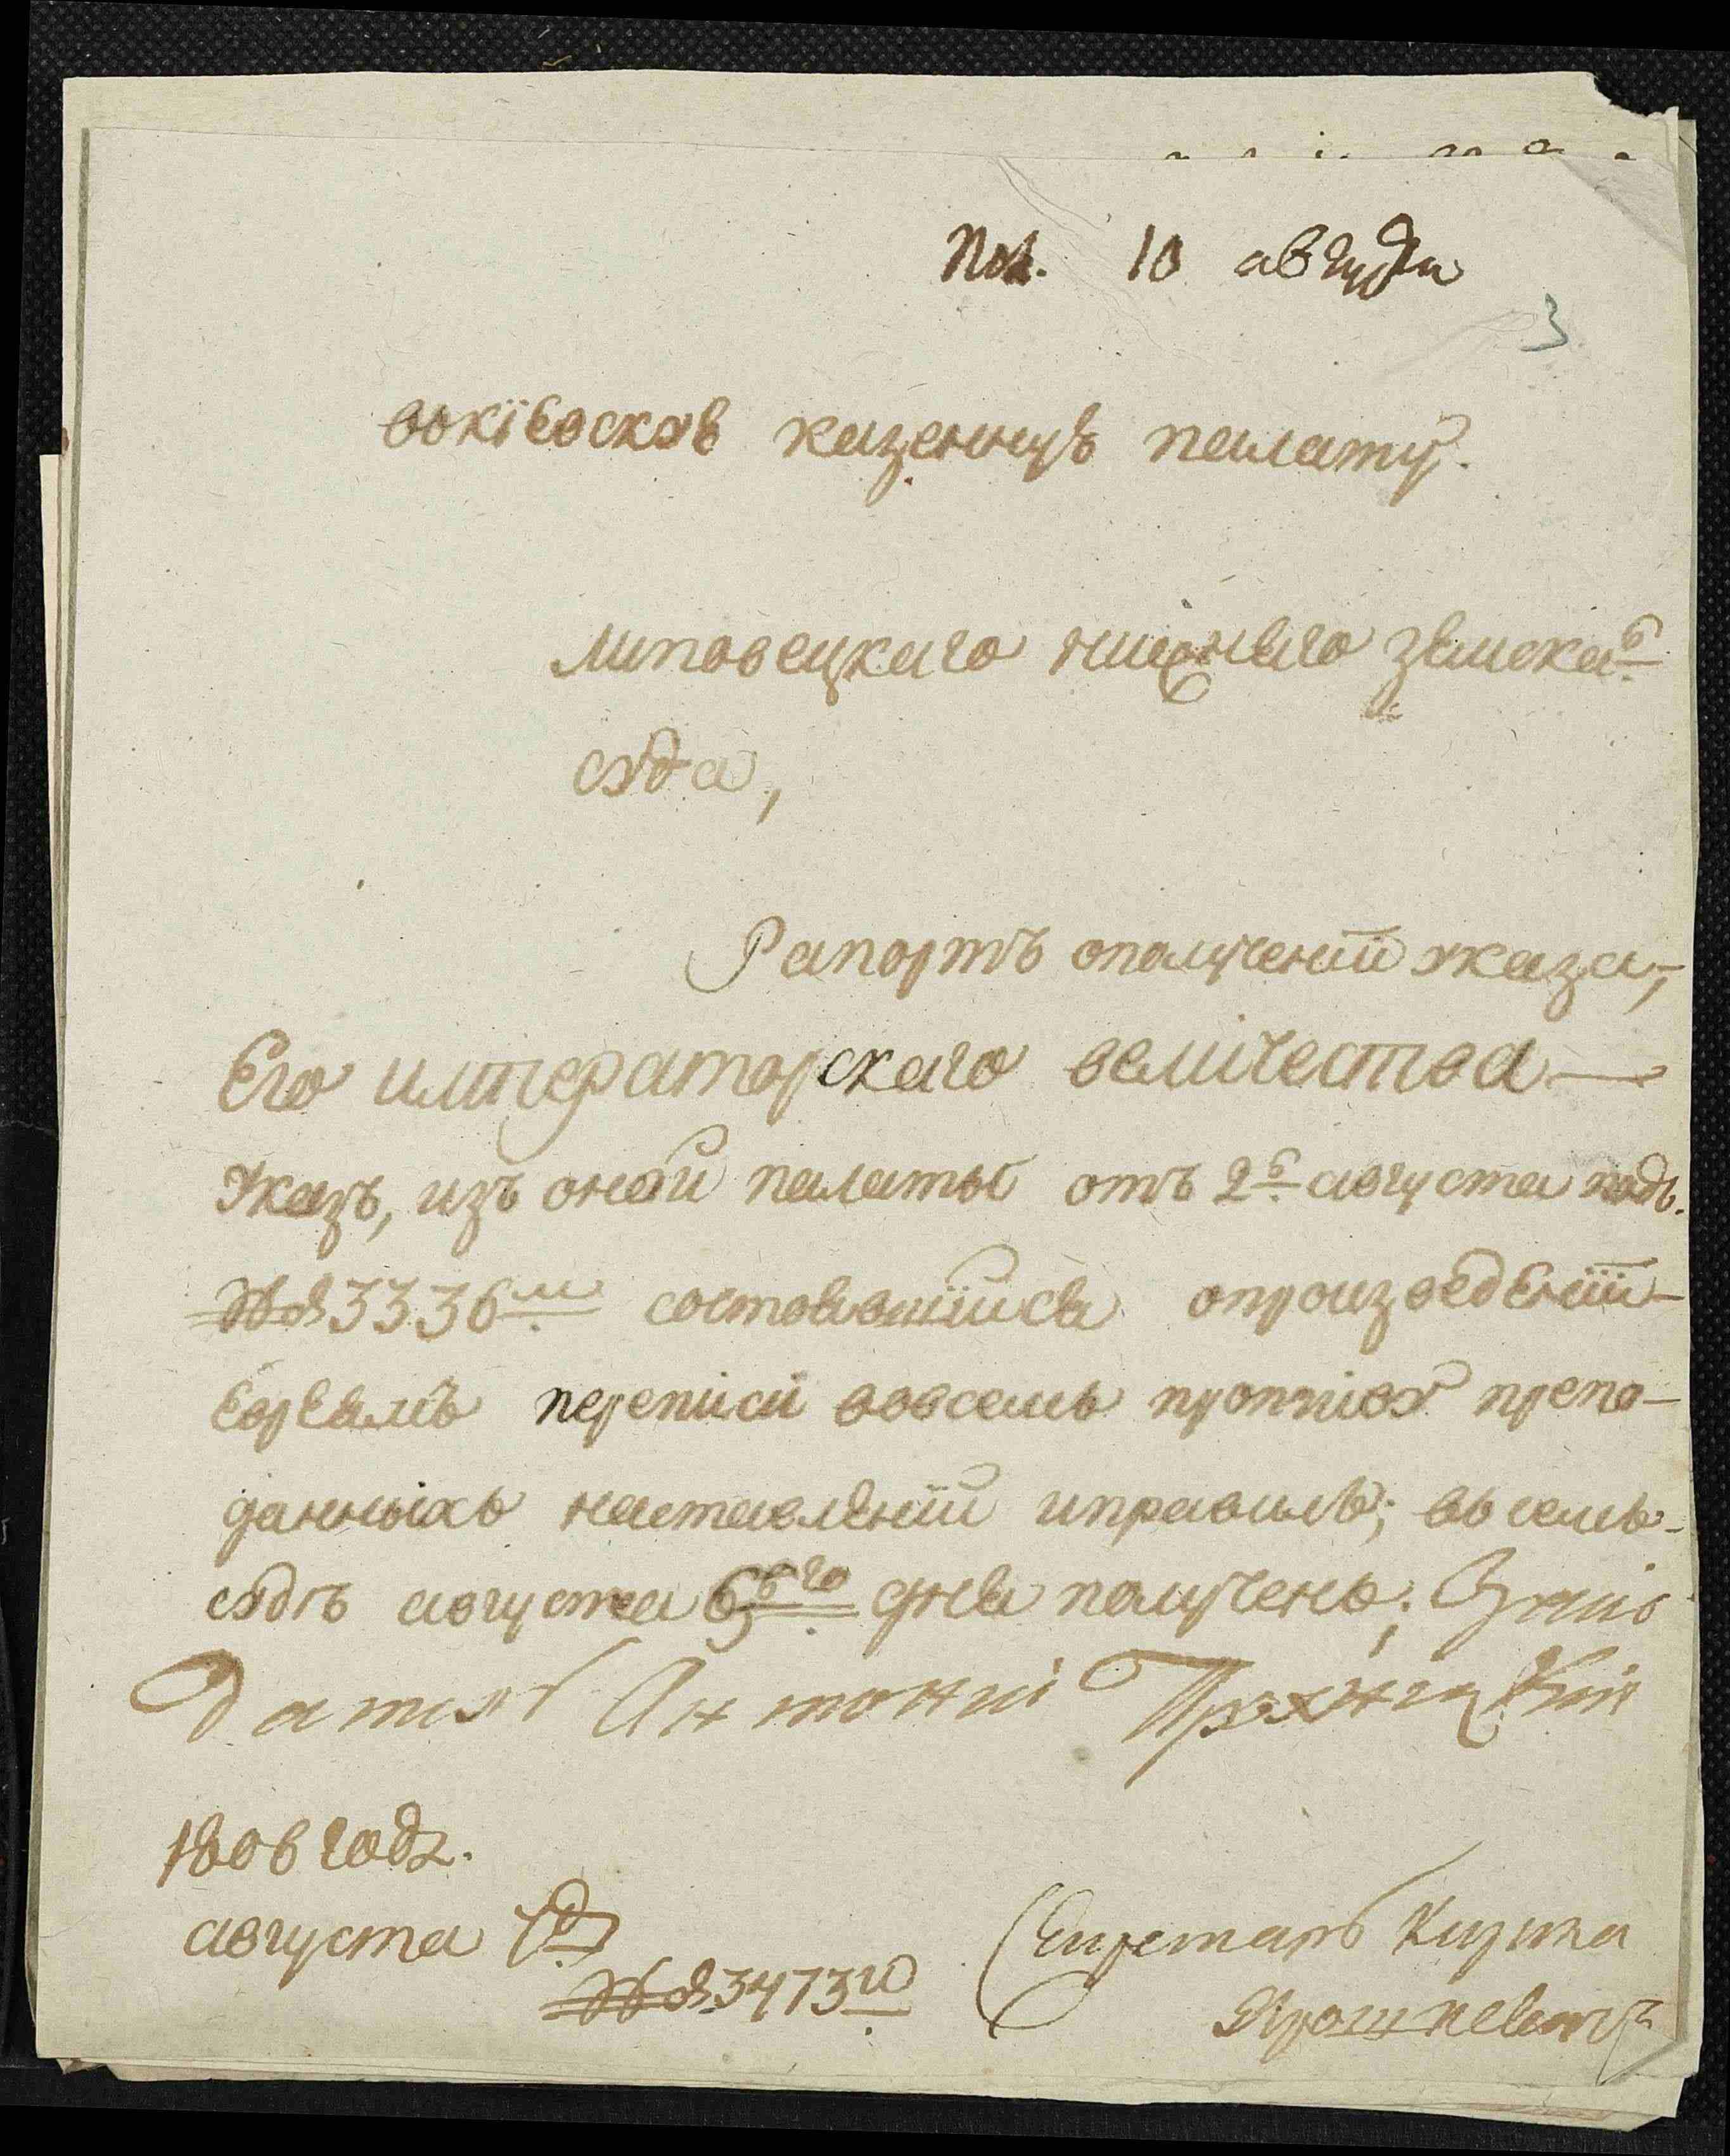 Пол. 10 августа
3
вокіевскую казенную палату.
липовецкаго нижняго земскаго
суда,
Рапортъ ополученіи указа,
Его императорскаго величества —
Указъ, изъ оной палаты отъ 2го августа подъ.
№м 3336м состоявшійся опроизведеніи
евреямъ переписи вовсемъ противу препо-
данныхъ наставленіи иправилъ; всемъ
судѣ августа 6го дня полученъ;
Антоній
1806 года.
августа
№м 3473ю
Секретарь